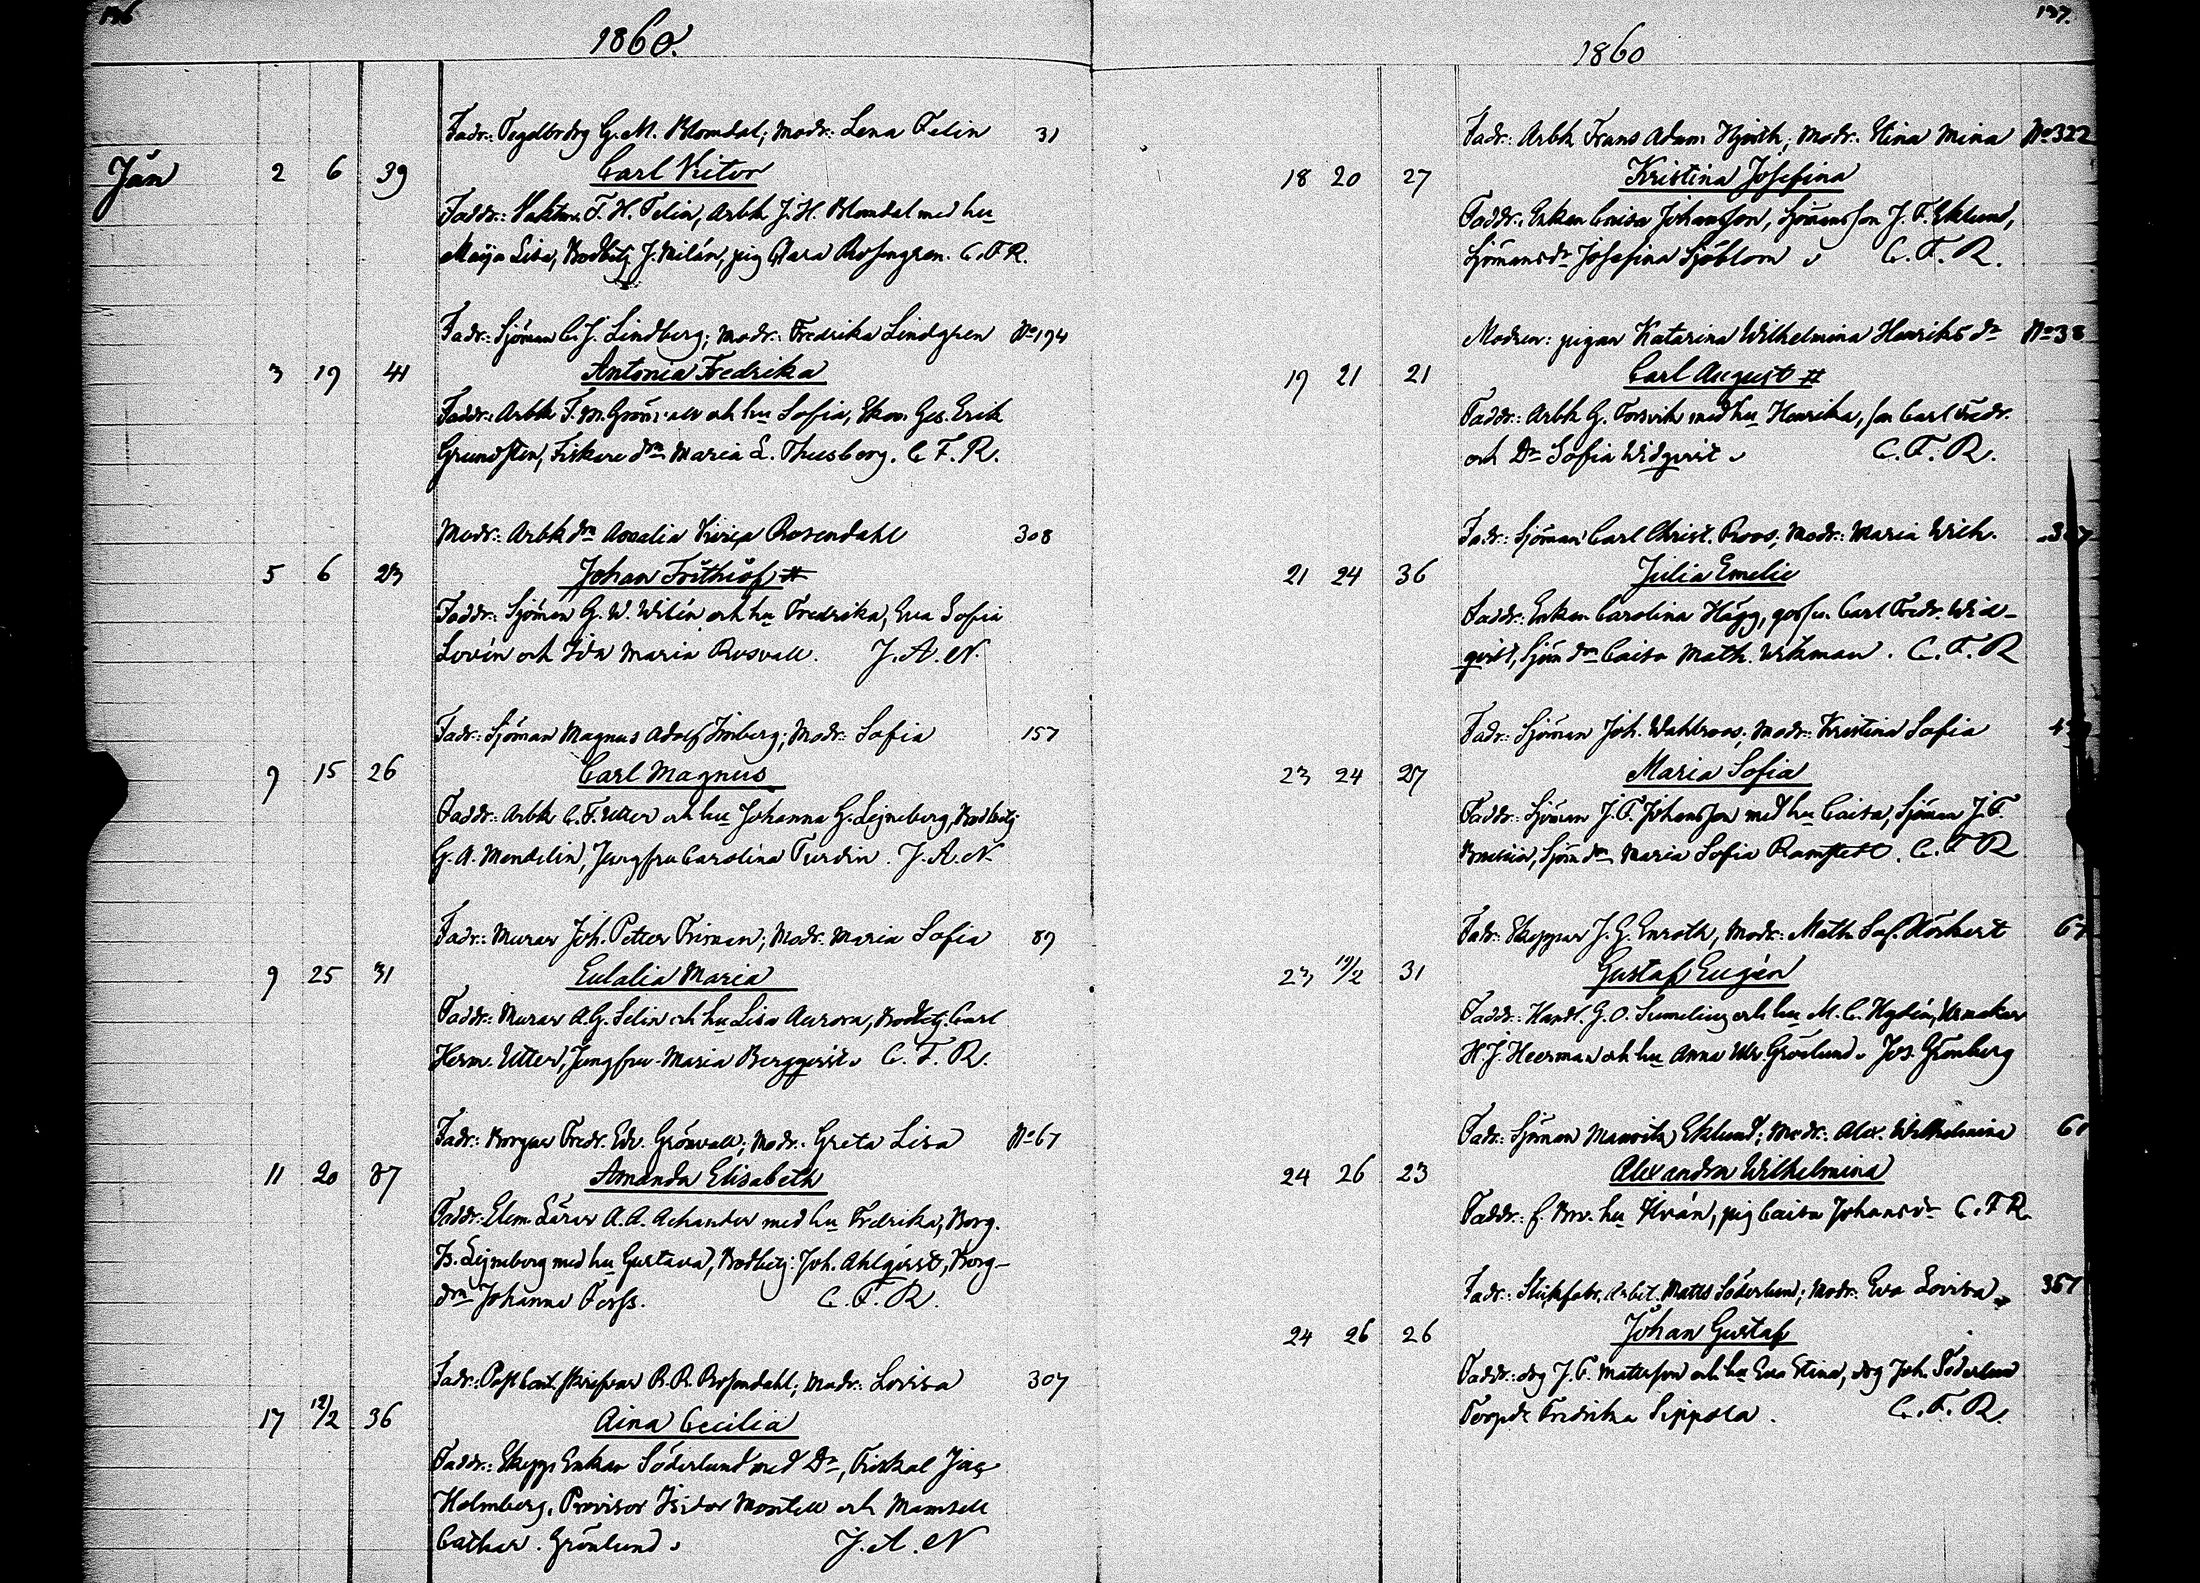 136
1860.
Fadr: G. M. Blomdal; Modr: Lena Felin 31
Jan 2 6 39 Carl Victor
Faddr: F. H. Felin, Arbk J. H. Blomdal med hu
Maija Lisa, Bodbetj J. Milén, pig Clara Rosengren. C. F. R.
Fadr: Sjöman C. J. Lindberg; Modr: Fredrika Lindgren No 194
3 19 41 Antonia Fredrika
Faddr: Arbk F. M. och hu Sofia, Erik
Grundsten, Fiskare drn Maria L. Thusberg. C. F. R.
Modr: Arbk drn Amalia Rosendahl 308
5 6 23 Johan Frithiof #
Faddr: Sjöman G. W. Wilén och hu Fredrika, Eva Sofia
Lovén och Ida Maria Rosvall. J. A. N.
Fadr: Sjöman Magnus Adolf; Modr: Sofia 157
9 15 26 Carl Magnus
Faddr: Arbk C. F. Utter och hu Johanna G. Lejneberg, Bodbetj
G. A. Mendelin, Jungfru Carolina Turdin. J. A. N.
Fadr: Murar Joh. Petter Friman; Modr: Maria Sofia 89
9 25 31 Eulalia Maria
Faddr: Murar A. G. Selin och hu Lisa Aurora, Bodbetj. Carl
Herm. Utter, Jungfru Maria Bergqvist. C. F. R.
Fadr: Borgar Fredr. Edv. Grönvall; Modr: Greta Lisa No 67
11 20 37 Amanda Elisabeth
Faddr: Elem. Lärar A. A. Achander med hu Fredrika, Borg.
Is. Lejneberg med hu Gustava, Bodbetj: Joh. Ahlqvist, Borg-
drn Johanna Forss. C. F. R.
Fadr: Post Cont. skrifvar R. R. Rosendahl; Modr: Lovisa 307
17 12/2 36 Aina Cecilia
Faddr: Skepp. Enkan Söderlund med Dr, Fiskal
Holmberg, Provisor Isidor Montell och Mamsell
Cathar. Grönlund. J. A. N
137.
1860
Fadr: Arbk Frans Adam Hjerth; Modr: Stina Mina No 322
18 20 27 Kristina Josefina
Faddr: Enkan Caisa Johansson, Sjömansson J. F. Eklund,
Sjömansdr Josefina Sjöblom. C. F. R.
Modren: pigan Katarina Wilhelmina Henriksdr No 38
19 21 21 Carl August #
Faddr: Arbk G. Forsvik med hu Henrika, son Carl Fredr.
och Dr Sofia Widqvist. C. F. R.
Fadr: Sjöman Carl Christ. Roos; Modr: Maria Wilh.
21 24 36 Julia Emelie
Faddr: Enkan Carolina Hägg, goss. Carl Fredr. Wid-
qvist, Sjöm drn Caisa Math. Wikman. C. F. R
Fadr: Sjöman Joh. Wahlroos; Modr: Kristina Sofia
23 24 27 Maria Sofia
Faddr: Sjöman J. F. Johansson med hu Caisa, Sjöman J. F.
Sjöm drn Maria Sofia Ramstedt. C. F. R
Fadr: Skeppar J. G. Enroth; Modr: Math. Sof.
23 19/2 31 Gustaf Eugén
Faddr: Handl. G. O. Sumelius och hu M. C. Hydén, Urmakar
H. J. Heerman och hu Anna Ulr. Grönlund. Jos. Grönberg
Fadr: Sjöman Mauritz Eklund; Modr: Alex. Wilhelmina
24 26 23 Alexandra Wilhelmina
Faddr: f. hu pig Caisa Johansdr C. F. R
Fadr: Arbet. Matts Söderlund; Modr: Eva Lovisa 367
24 26 26 Johan Gustaf
Faddr: drg J. F. Mattsson och hu Eva Stina, drg Joh. Söderlund
Torpdr Fredrika Seppola. C. F. R.